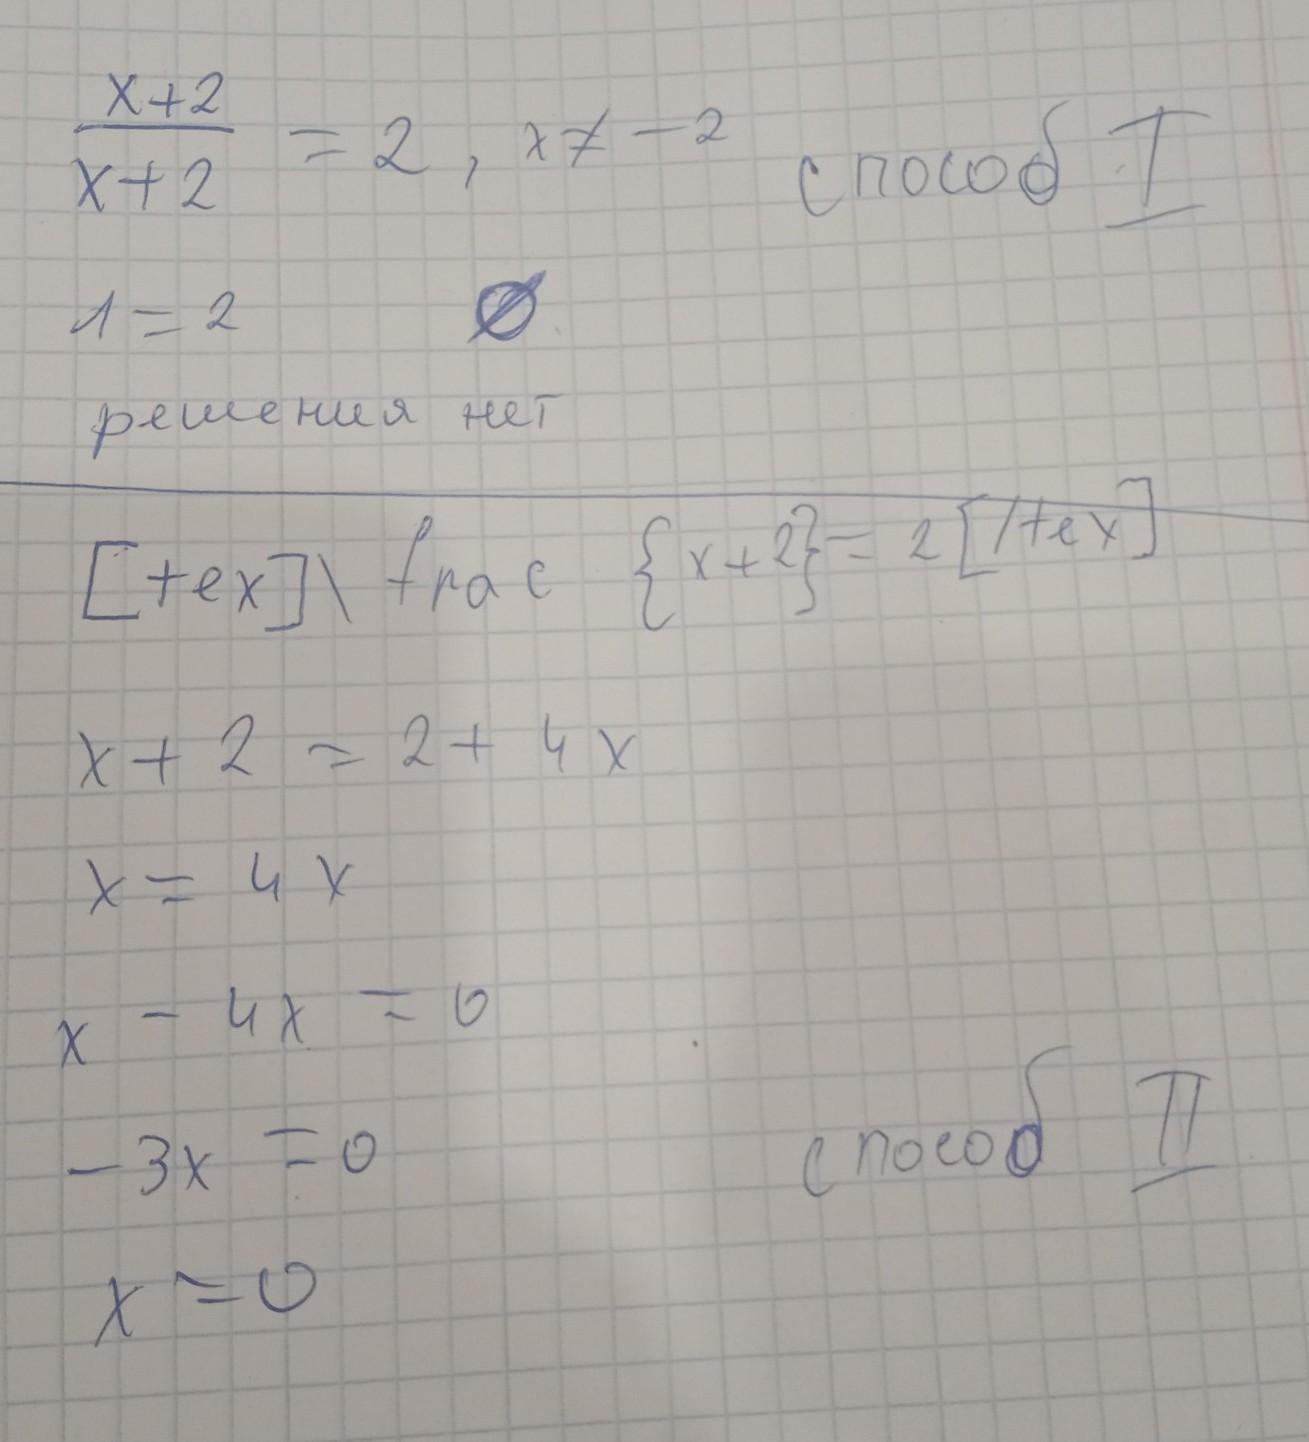 x+2
x+2 = 2, x ≠ -2 способ I
1 = 2 Ø
решения нет
[tex]\frac {x+2} = 2[/tex]
x + 2 = 2 + 4x
x = 4x
x - 4x = 0
-3x = 0 способ II
x = 0